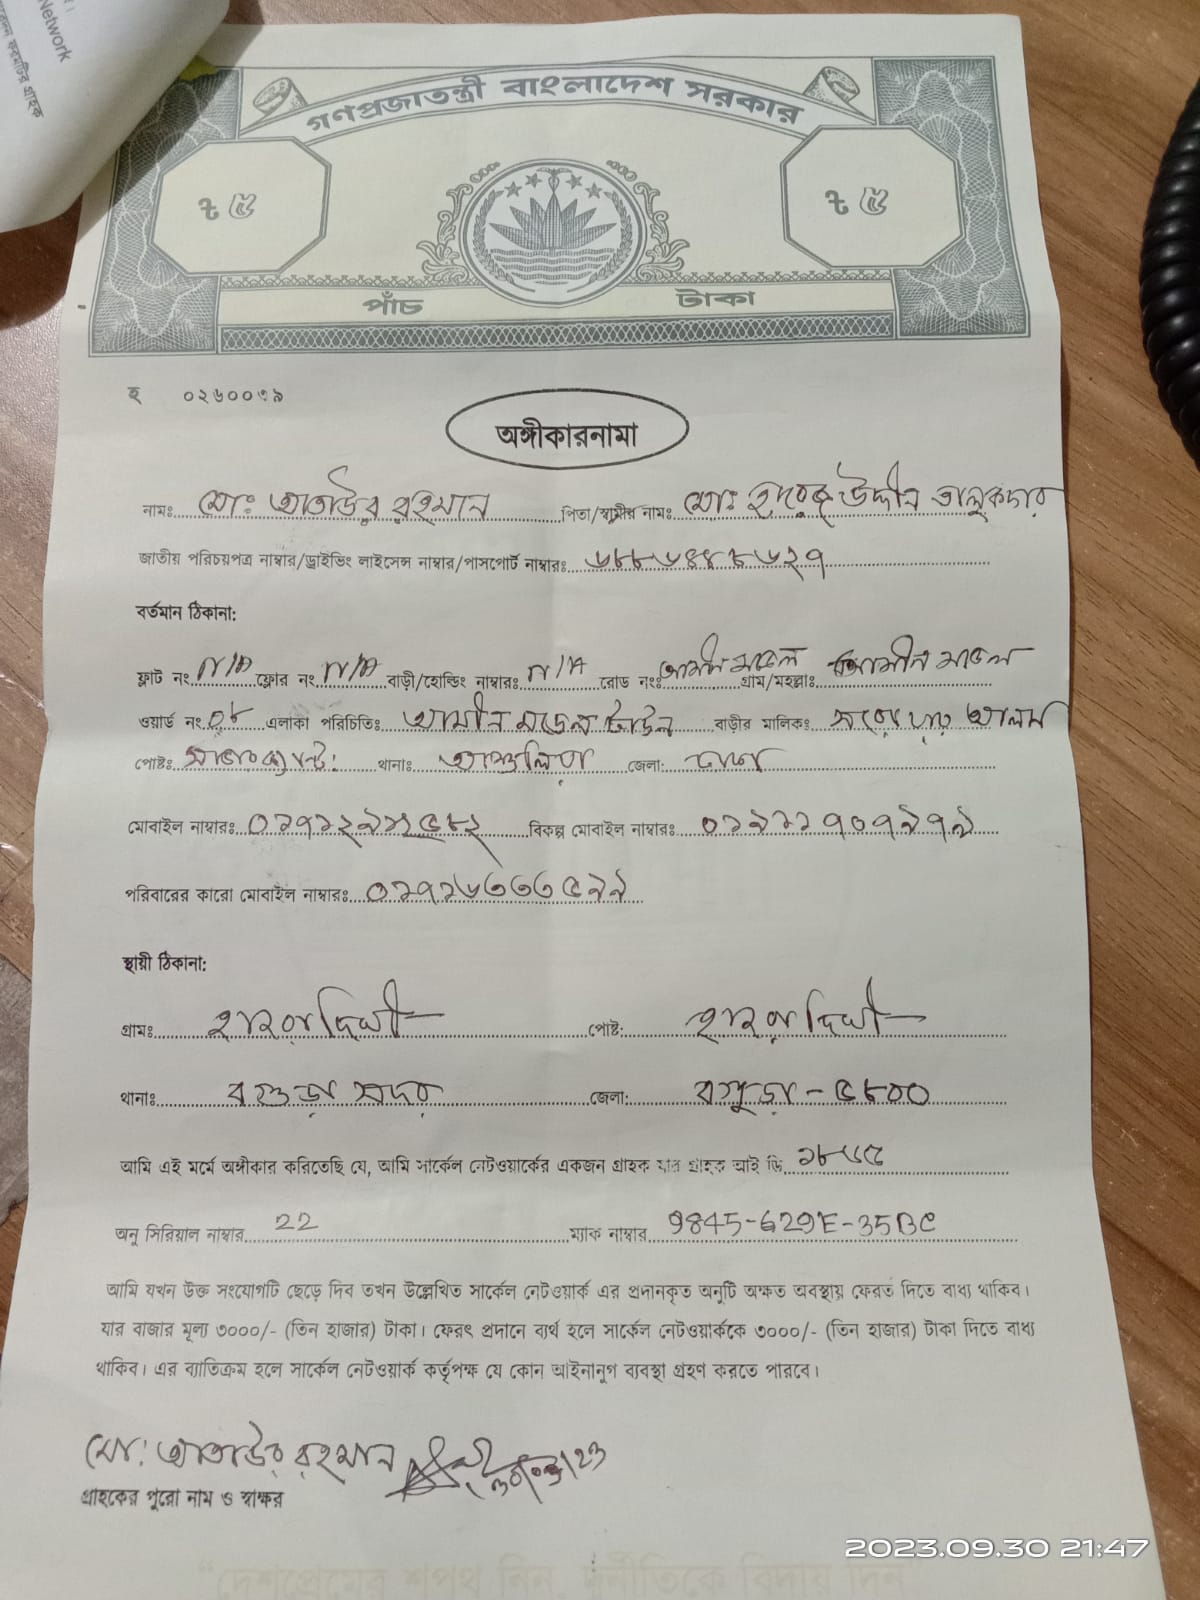 Network
গণপ্রজাতন্ত্রী বাংলাদেশ সরকার
৳ ৫ ৳ ৫
পাঁচ টাকা
হ ০২৬০০৩৯
অঙ্গীকারনামা
নামঃ মোঃ আতাউর রহমান পিতা/স্বামীর নামঃ মোঃ উদ্দীন তালুকদার
জাতীয় পরিচয়পত্র নাম্বার/ড্রাইভিং লাইসেন্স নাম্বার/পাসপোর্ট নাম্বারঃ
বর্তমান ঠিকানা:
ফ্লাট নং N/A ফ্লোর নং N/A বাড়ী/হোল্ডিং নাম্বারঃ N/A রোড নংঃ আমীন মডেল গ্রাম/মহল্লাঃ আমীন মডেল
ওয়ার্ড নং ০৮ এলাকা পরিচিতিঃ আমীন মডেল টাউন বাড়ীর মালিকঃ আলম
পোষ্টঃ থানাঃ আশুলিয়া জেলা: ঢাকা
মোবাইল নাম্বারঃ বিকল্প মোবাইল নাম্বারঃ ০১৯১১৭০৭৯৭৯
পরিবারের কারো মোবাইল নাম্বারঃ ০১৭১৬৩৩৩৫৯৯
স্থায়ী ঠিকানা:
গ্রামঃ পোষ্ট:
থানাঃ বগুড়া সদর জেলা: বগুড়া - ৫৮০০
আমি এই মর্মে অঙ্গীকার করিতেছি যে, আমি সার্কেল নেটওয়ার্কের একজন গ্রাহক যার গ্রাহক আই ডি
অনু সিরিয়াল নাম্বার 22 ম্যাক নাম্বার 9845-629E-35BC
আমি যখন উক্ত সংযোগটি ছেড়ে দিব তখন উল্লেখিত সার্কেল নেটওয়ার্ক এর প্রদানকৃত অনুটি অক্ষত অবস্থায় ফেরত দিতে বাধ্য থাকিব।
যার বাজার মূল্য ৩০০০/- (তিন হাজার) টাকা। ফেরৎ প্রদানে ব্যর্থ হলে সার্কেল নেটওয়ার্ককে ৩০০০/- (তিন হাজার) টাকা দিতে বাধ্য
থাকিব। এর ব্যাতিক্রম হলে সার্কেল নেটওয়ার্ক কর্তৃপক্ষ যে কোন আইনানুগ ব্যবস্থা গ্রহণ করতে পারবে।
মোঃ আতাউর রহমান
গ্রাহকের পুরো নাম ও স্বাক্ষর
2023.09.30 21:47
"দেশপ্রেমের শপথ নিন, দুর্নীতিকে বিদায় দিন"